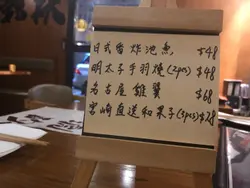 日式香炸池魚 $48
明太子手羽燒(2pcs) $48
名古屋雞翼 $68
宮崎直送和果子(3pcs) $78